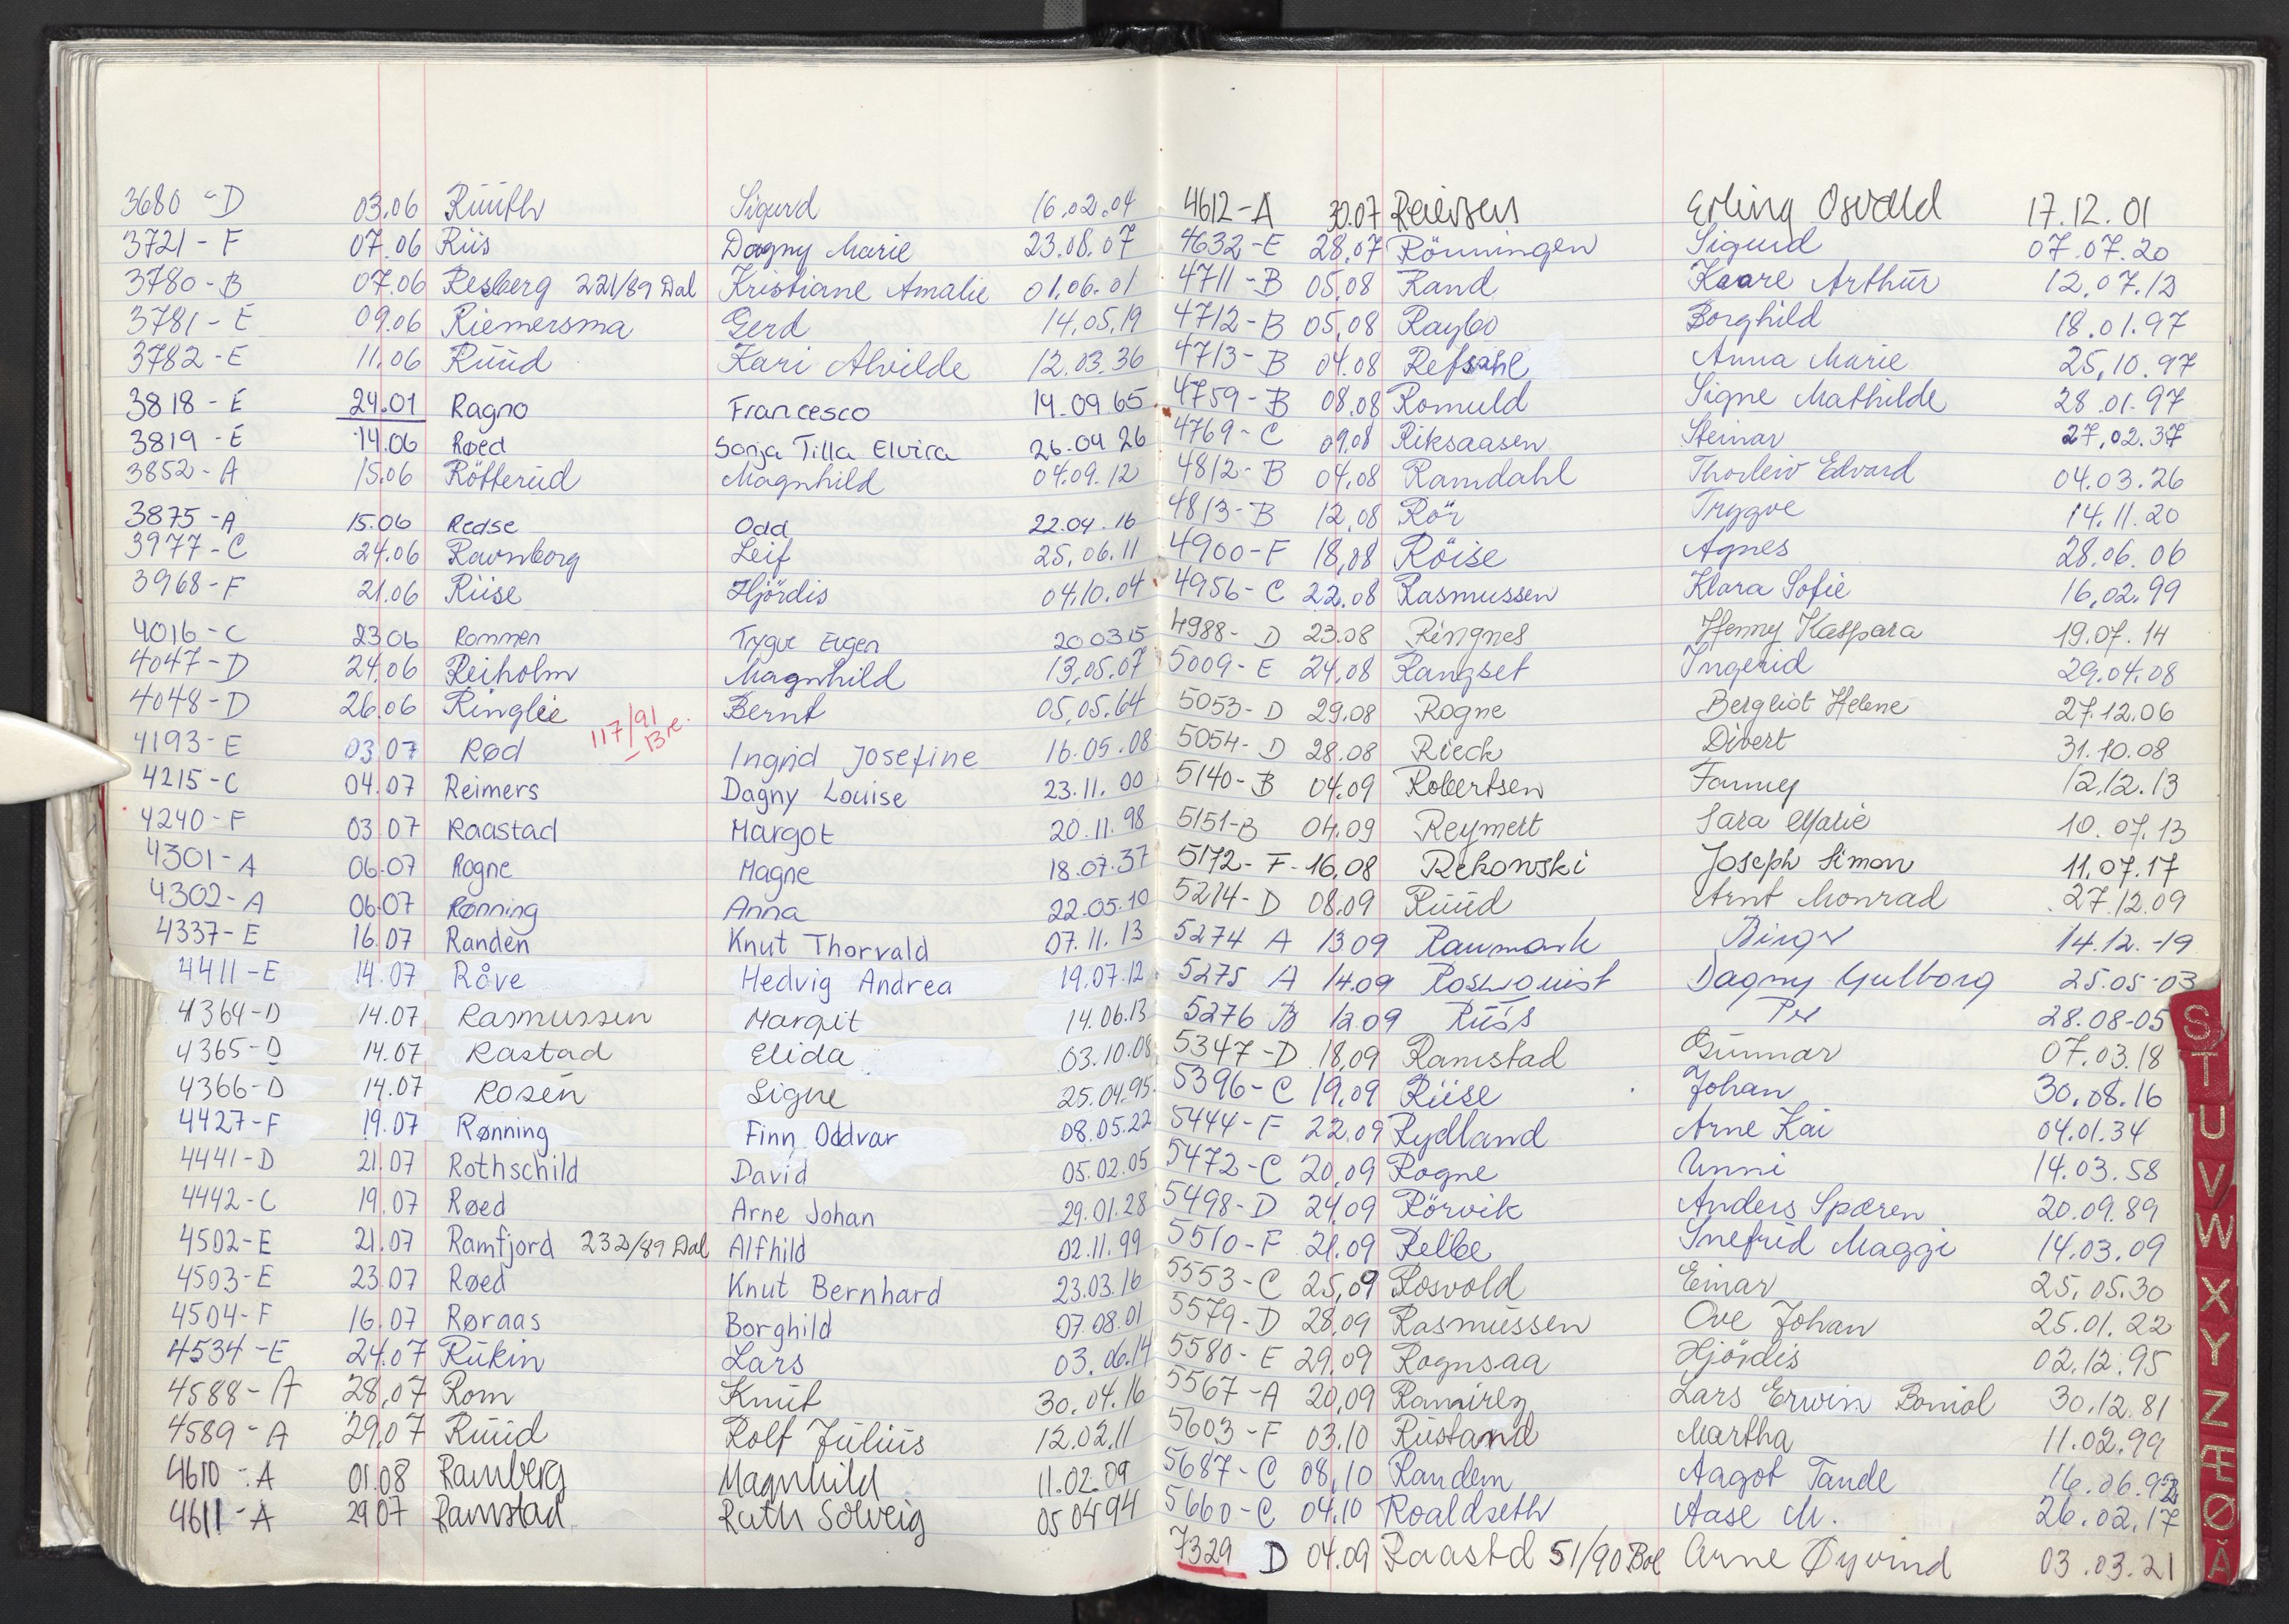 3680 - D 03.06 Ruuth Sigurd 16.02.04
3721 - F 07.06 Riis Dagny Marie 23.08.07
3780 - B 07.06 Resberg 221/89 Dal Kristiane Amalie 01.06.01
3781 - E 09.06 Riemersma Gerd 14.05.19
3782 - E 11.06 Ruud Kari Alvilde 12.03.36
3818 - E 24.01 Ragno Francesco 14.09 65
3819 - E 14.06 Røed Sonja Tilla Elvira 26.04 26
3852 - A 15.06 Rötterud Magnhild 04.09.12
3875 - A 15.06 Redse Odd 22.04.16
3977 - C 24.06 Ravnborg Leif 25.06.11
3968 - F 21.06 Riise Hjördis 04.10.04
4016 - C 23 06 Rommen Trygve Eugen 20 03 15
4047 - D 24.06 Reiholm Magnhild 13.05.07
4048 - D 26.06 Ringlie Bernt 05.05.64
4193 - E 03.07 Rød 117/91 Bre. Ingrid Josefine 16.05.08
4215 - C 04.07 Reimers Dagny Louise 23.11.00
4240 - F 03 07 Raastad Margot 20.11.98
4301 - A 06.07 Rogne Magne 18.07.37
4302 - A 06.07 Rønning Anna 22.05.10
4337 - E 16.07 Randen Knut Thorvald 07.11.13
4411 - E 14.07 Råve Hedvig Andrea 19.07.12
4364 - D 14.07 Rasmussen Margit 14.06.13
4365 - D 14.07 Rastad Elida 03.10.08
4366 - D 14.07 Rosén Signe 25.04.95
4427 - F 19.07 Rønning Finn Oddvar 08.05.22
4441 - D 21.07 Rothschild David 05.02.05
4442 - C 19.07 Røed Arne Johan 29.01.28
4502 - E 21.07 Ramfjord 232/89 Dal Alfhild 02.11.99
4503 - E 23.07 Røed Knut Bernhard 23.03.16
4504 - F 16.07 Røraas Borghild 07.08.01
4534 - E 24.07 Rukin Lars 03.06.14
4588 - A 28.07 Rom Knut 30.04.16
4589 - A 29.07 Ruud Rolf Julius 12.02.11
4610 - A 01.08 Ramberg Magnhild 11.02.09
4611 - A 29 07 Ramstad Ruth Solveig 05 04 94
4612 - A 30.07 Reiersen Erling Osvald 17.12.01
4632 - E 28.07 Rönningen Sigurd 07.07.20
4711 - B 05.08 Rand Kaare Arthur 12.07.12
4712 - B 05.08 Raybo Borghild 18.01.97
4713 - B 04.08 Refsahl Anna Marie 25.10.97
4759 - B 08.08 Romuld Signe Mathilde 28.01.97
4769 - C 09.08 Riksaasen Steinar 27.02.37
4812 - B 04.08 Ramdahl Thorleiv Edvard 04.03.26
4813 - B 12.08 Rör Trygve 14.11.20
4900 - F 18.08 Röise Agnes 28.06.06
4956 - C 22.08 Rasmussen Klara Sofie 16.02.99
4988 - D 23.08 Ringnes Henny Kaspara 19.07.14
5009 - E 24.08 Rangset Ingerid 29.04.08
5053 - D 29.08 Rogne Bergliot Helene 27.12.06
5054 - D 28.08 Rieck Divert 31.10.08
5140 - B 04.09 Robertsen Fanny 12.12.13
5151 - B 04.09 Reymert Sara Marie 10.07.13
5172 - F - 16.08 Rekowski Joseph Simon 11.07.17
5214 - D 08.09 Ruud Arnt Monrad 27.12.09
5274 A 13 09 Raumark Birger 14.12.-19
5275 A 14.09 Rosenquist Dagny Gulborg 25.05-03
5276 B 12.09 Russ Per 28.08-05
5347 - D 18.09 Ramstad Gunnar 07.03.18
5396 - C 19.09 Riise Johan 30.08.16
5444 - F 22.09 Rydland Arne Kai 04.01.34
5472 - C 20.09 Rogne Unni 14.03.58
5498 - D 24.09 Rörvik Anders Sparen 20.09.89
5510 - F 21.09 Relbe Snefrid Maggi 14.03.09
5553 - C 25.09 Rosvold Einar 25.05.30
5579 - D 28.09 Rasmussen Ove Johan 25.01.22
5580 - E 29.09 Rognsaa Hjördis 02.12.95
5567 - A 20.09 Ramirez Lars Erwin 30.12.81
5603 - F 03.10 Rustand Martha 11.02.99
5687 - C 08.10 Randem Aagot Tande 16.06.92
5660 - C 04.10 Roaldseth Aase M. 26.02.17
7329 D 04.09 Raastd 51/90 Bol Arne Øyvind 03.03.21
S
T
U
V
W
X
Y
Z
Æ
Ø
Å